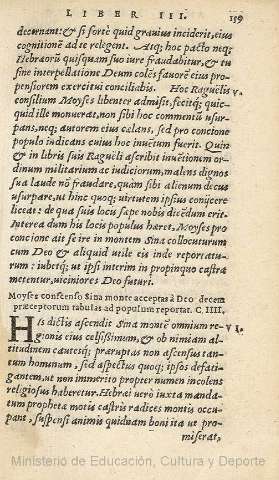 LIBER III. 159
decernant: & si fortè quid grauius inciderit, eius
cognitionē ad te relegent. Atq; hoc pacto neq;
Hebræoris quisquam suo iure fraudabitur, & tu
sine interpellatione Deum colēs fauorē eius pro-
pensiorem exercitui conciliabis. Hoc Raguëlis v.
consilium Moyses libenter admisit, fecitq; quic-
quid ille monuerat, non sibi hoc commentū usur-
pans, neq; autorem eius cælans, sed pro concione
populo indicans cuius hoc inuētum fuerit. Quin
& in libris suis Raguëli ascribit inuētionem or-
dinum militarium ac iudiciorum, malens dignos
sua laude nō fraudare, quàm sibi alienum decus
usurpare, ut hinc quoq; uirtutem ipsius conijcere
liceat: de qua suis locis sæpe nobis dicēdum erit.
Interea dum his locis populus hæret, Moyses pro
concione ait se ire in montem Sina collocuturum
cum Deo & aliquid utile eis inde reportatu-
rum: iubetq; ut ipsi interim in propinquo castra
metentur, uiciniores Deo futuri.
Moyses conscenso Sina monte acceptas à Deo decem
præceptorum tabulas ad populum reportat. C. IIII.
His dictis ascendit Sina montē omnium re- VI.
gionis eius celsissimum, & ob nimiam al-
titudinem cautesq; præruptas non ascensus tan-
tum hominum, sed aspectus quoq; ipsos defati-
gantem, ut non immeritò propter numen incolens
religiosus haberetur. Hebræi uerò iuxta manda-
tum prophetæ motis castris radices montis occu-
pant, suspensi animis quidnam boni ta ut pro-
miserat,
Ministerio de Educación, Cultura y Deporte